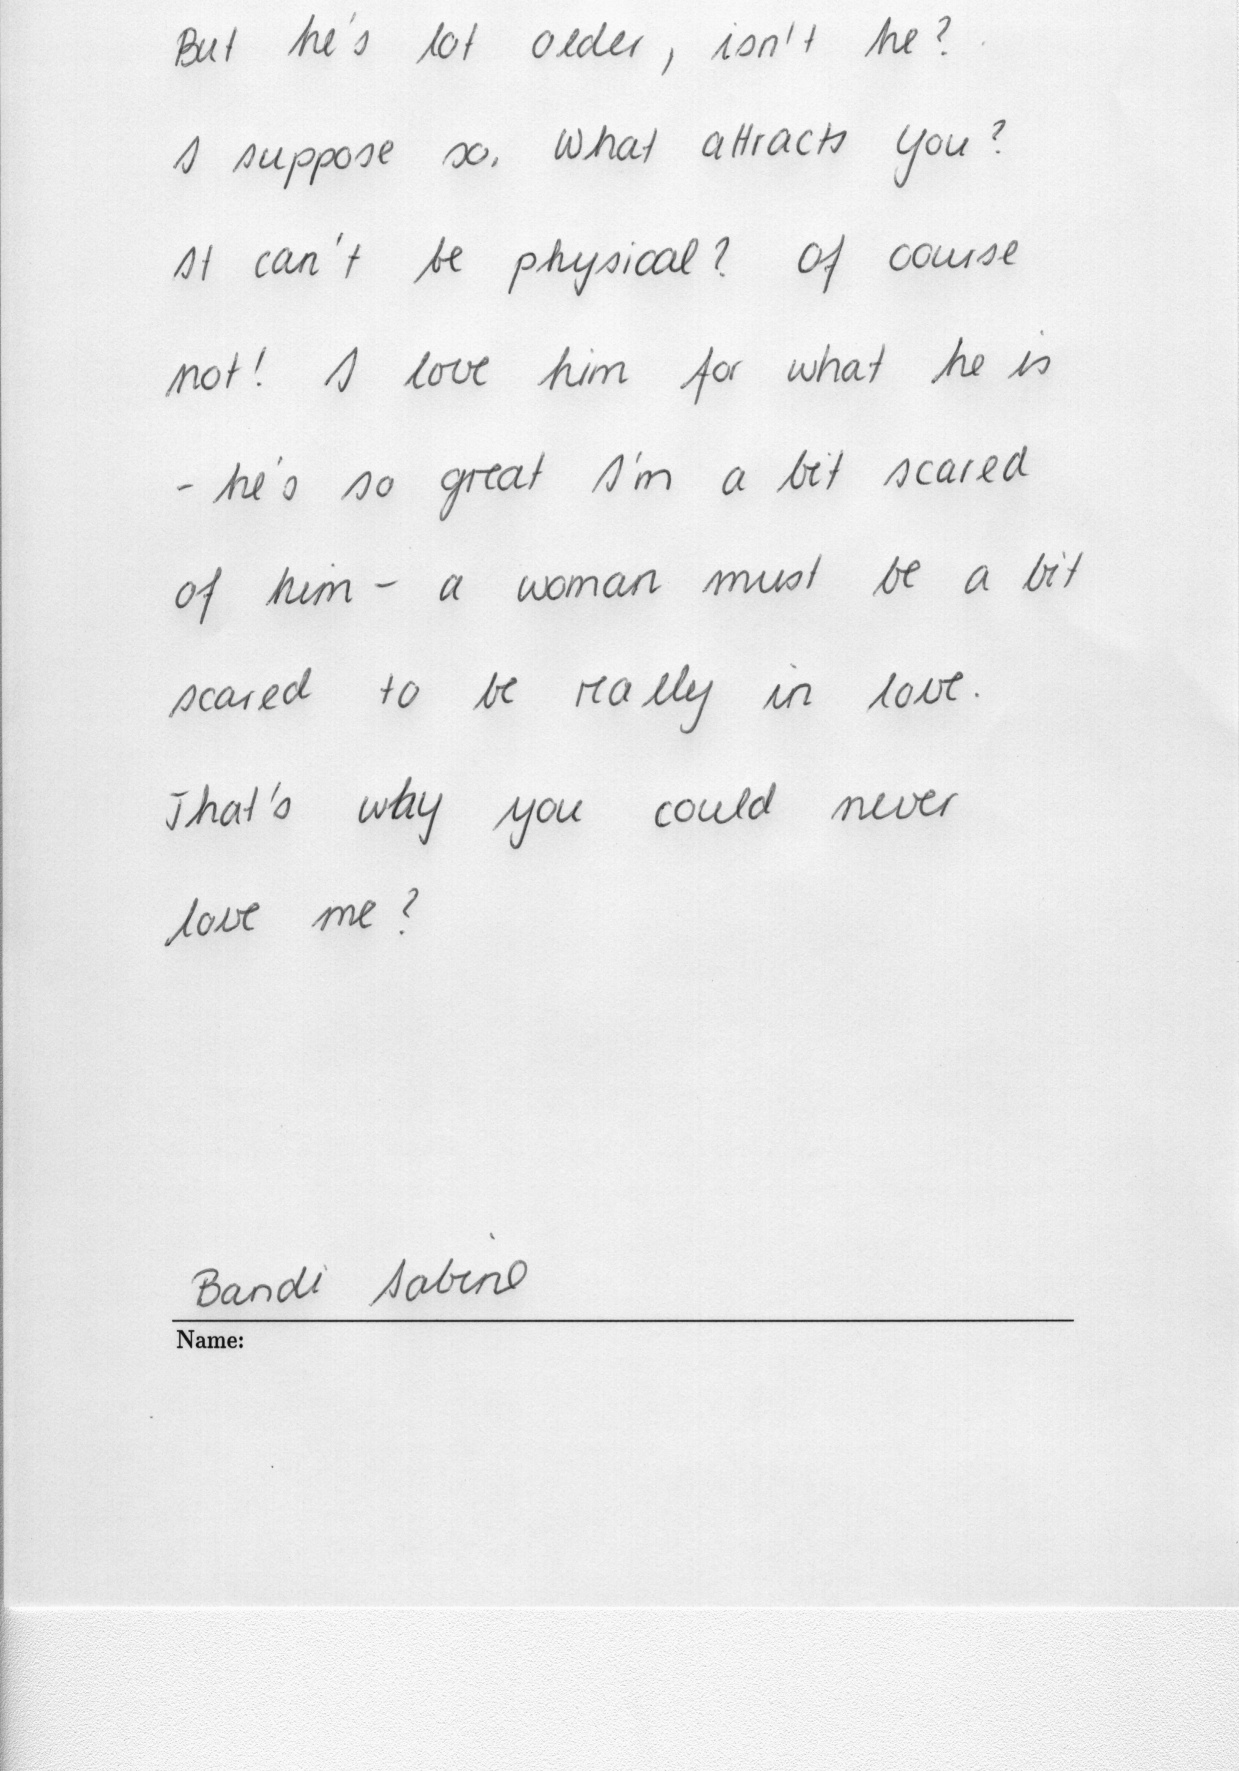 But he's lot older, isn't he?
I suppose so. What attracts you?
It can't be physical? Of course
not! I love him for what he is
- he's so great I'm a bit scared
of him - a woman must be a bit
scared to be really in love.
That's why you could never
love me?
Bandi Sabine
Name: